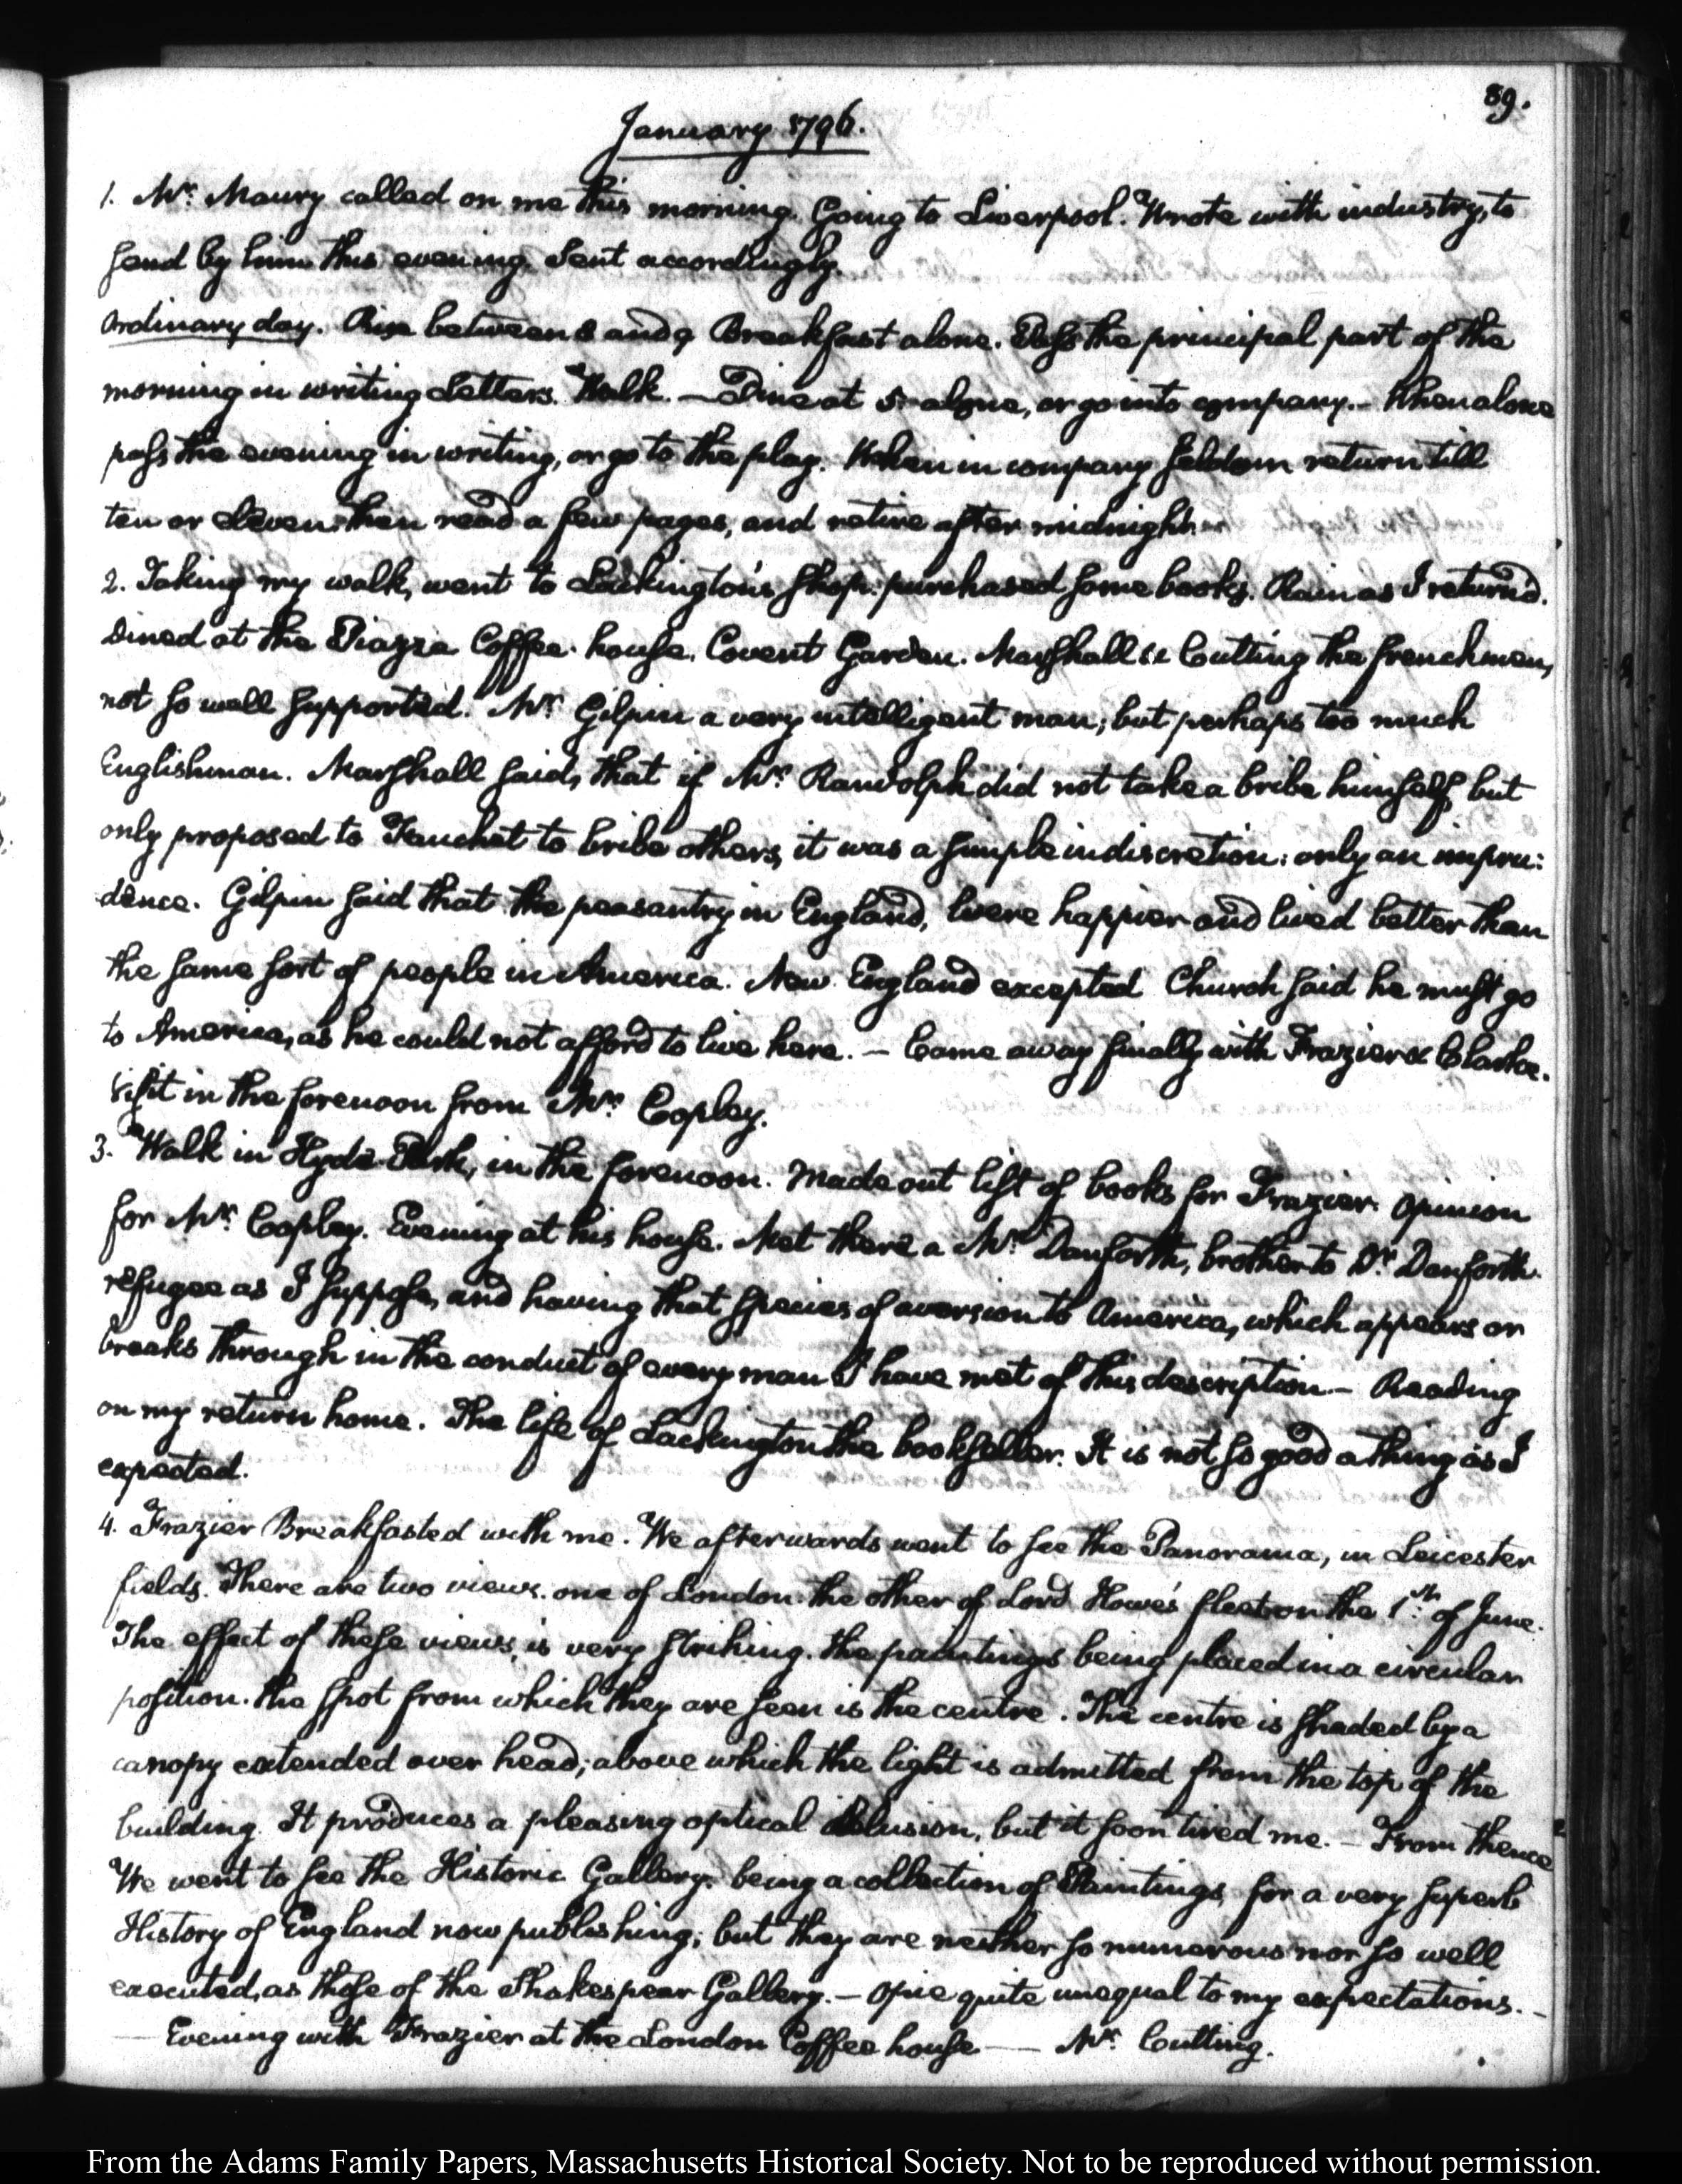 89.
January 1796.
1. Mr. Maury called on me this morning. Going to Liverpool. Wrote with industry, to
send by him this evening. Sent accordingly.
Ordinary day. Rise between 8 and 9 Breakfast alone. Pass the principal part of the
morning in writing Letters. Walk. — Dine at 5 alone, or go into company. — When alone
pass the evening in writing, or go to the play. When in company seldom return till
ten or eleven: then read a few pages, and retire after midnight.
2. Taking my walk, went to Lackington's shop: purchased some books. Rain as I return'd.
Dined at the Piazza Coffee-house. Covent Garden. Marshall & Cutting the frenchmen,
not so well supported. Mr. Gilpin a very intelligent man; but perhaps too much
Englishman. Marshall said, that if Mr. Randolph did not take a bribe himself, but
only proposed to Fauchet to bribe others, it was a simple indiscretion: only an impru:
dence. Gilpin said that the peasantry in England, were happier and lived better than
the same sort of people in America. New England excepted Church said he must go
to America, as he could not afford to live here. — Came away finally with Frazier & Clarke.
Visit in the forenoon from Mr. Copley.
3. Walk in Hyde Park, in the forenoon. Made out list of books for Frazier. Opinion
for Mr. Copley. Evening at his house. Met there a Mr. Danforth, brother to Dr. Danforth.
refugee as I suppose, and having that species of aversion to America, which appears or
breaks through in the conduct of every man I have met of this description — Reading
on my return home. The life of Lackington the bookseller. It is not so good a thing as I
expected.
4. Frazier Breakfasted with me. We afterwards went to see the Panorama, in Leicester
fields. There are two views. one of London. the other of Lord Howe's fleet on the 1st. of June.
The effect of these views, is very striking. the paintings being placed in a circular
position. the spot from which they are seen is the centre. The centre is shaded by a
canopy extended over head; above which the light is admitted from the top of the
building. It produces a pleasing optical delusion, but it soon tired me. — From thence
We went to see the Historic Gallery. being a collection of Paintings, for a very superb
History of England now publishing; but they are neither so numerous nor so well
executed, as those of the Shakespear Gallery. — Opie quite unequal to my expectations. —
— Evening with Frazier at the London Coffee house — Mr. Cutting.
From the Adams Family Papers, Massachusetts Historical Society. Not to be reproduced without permission.